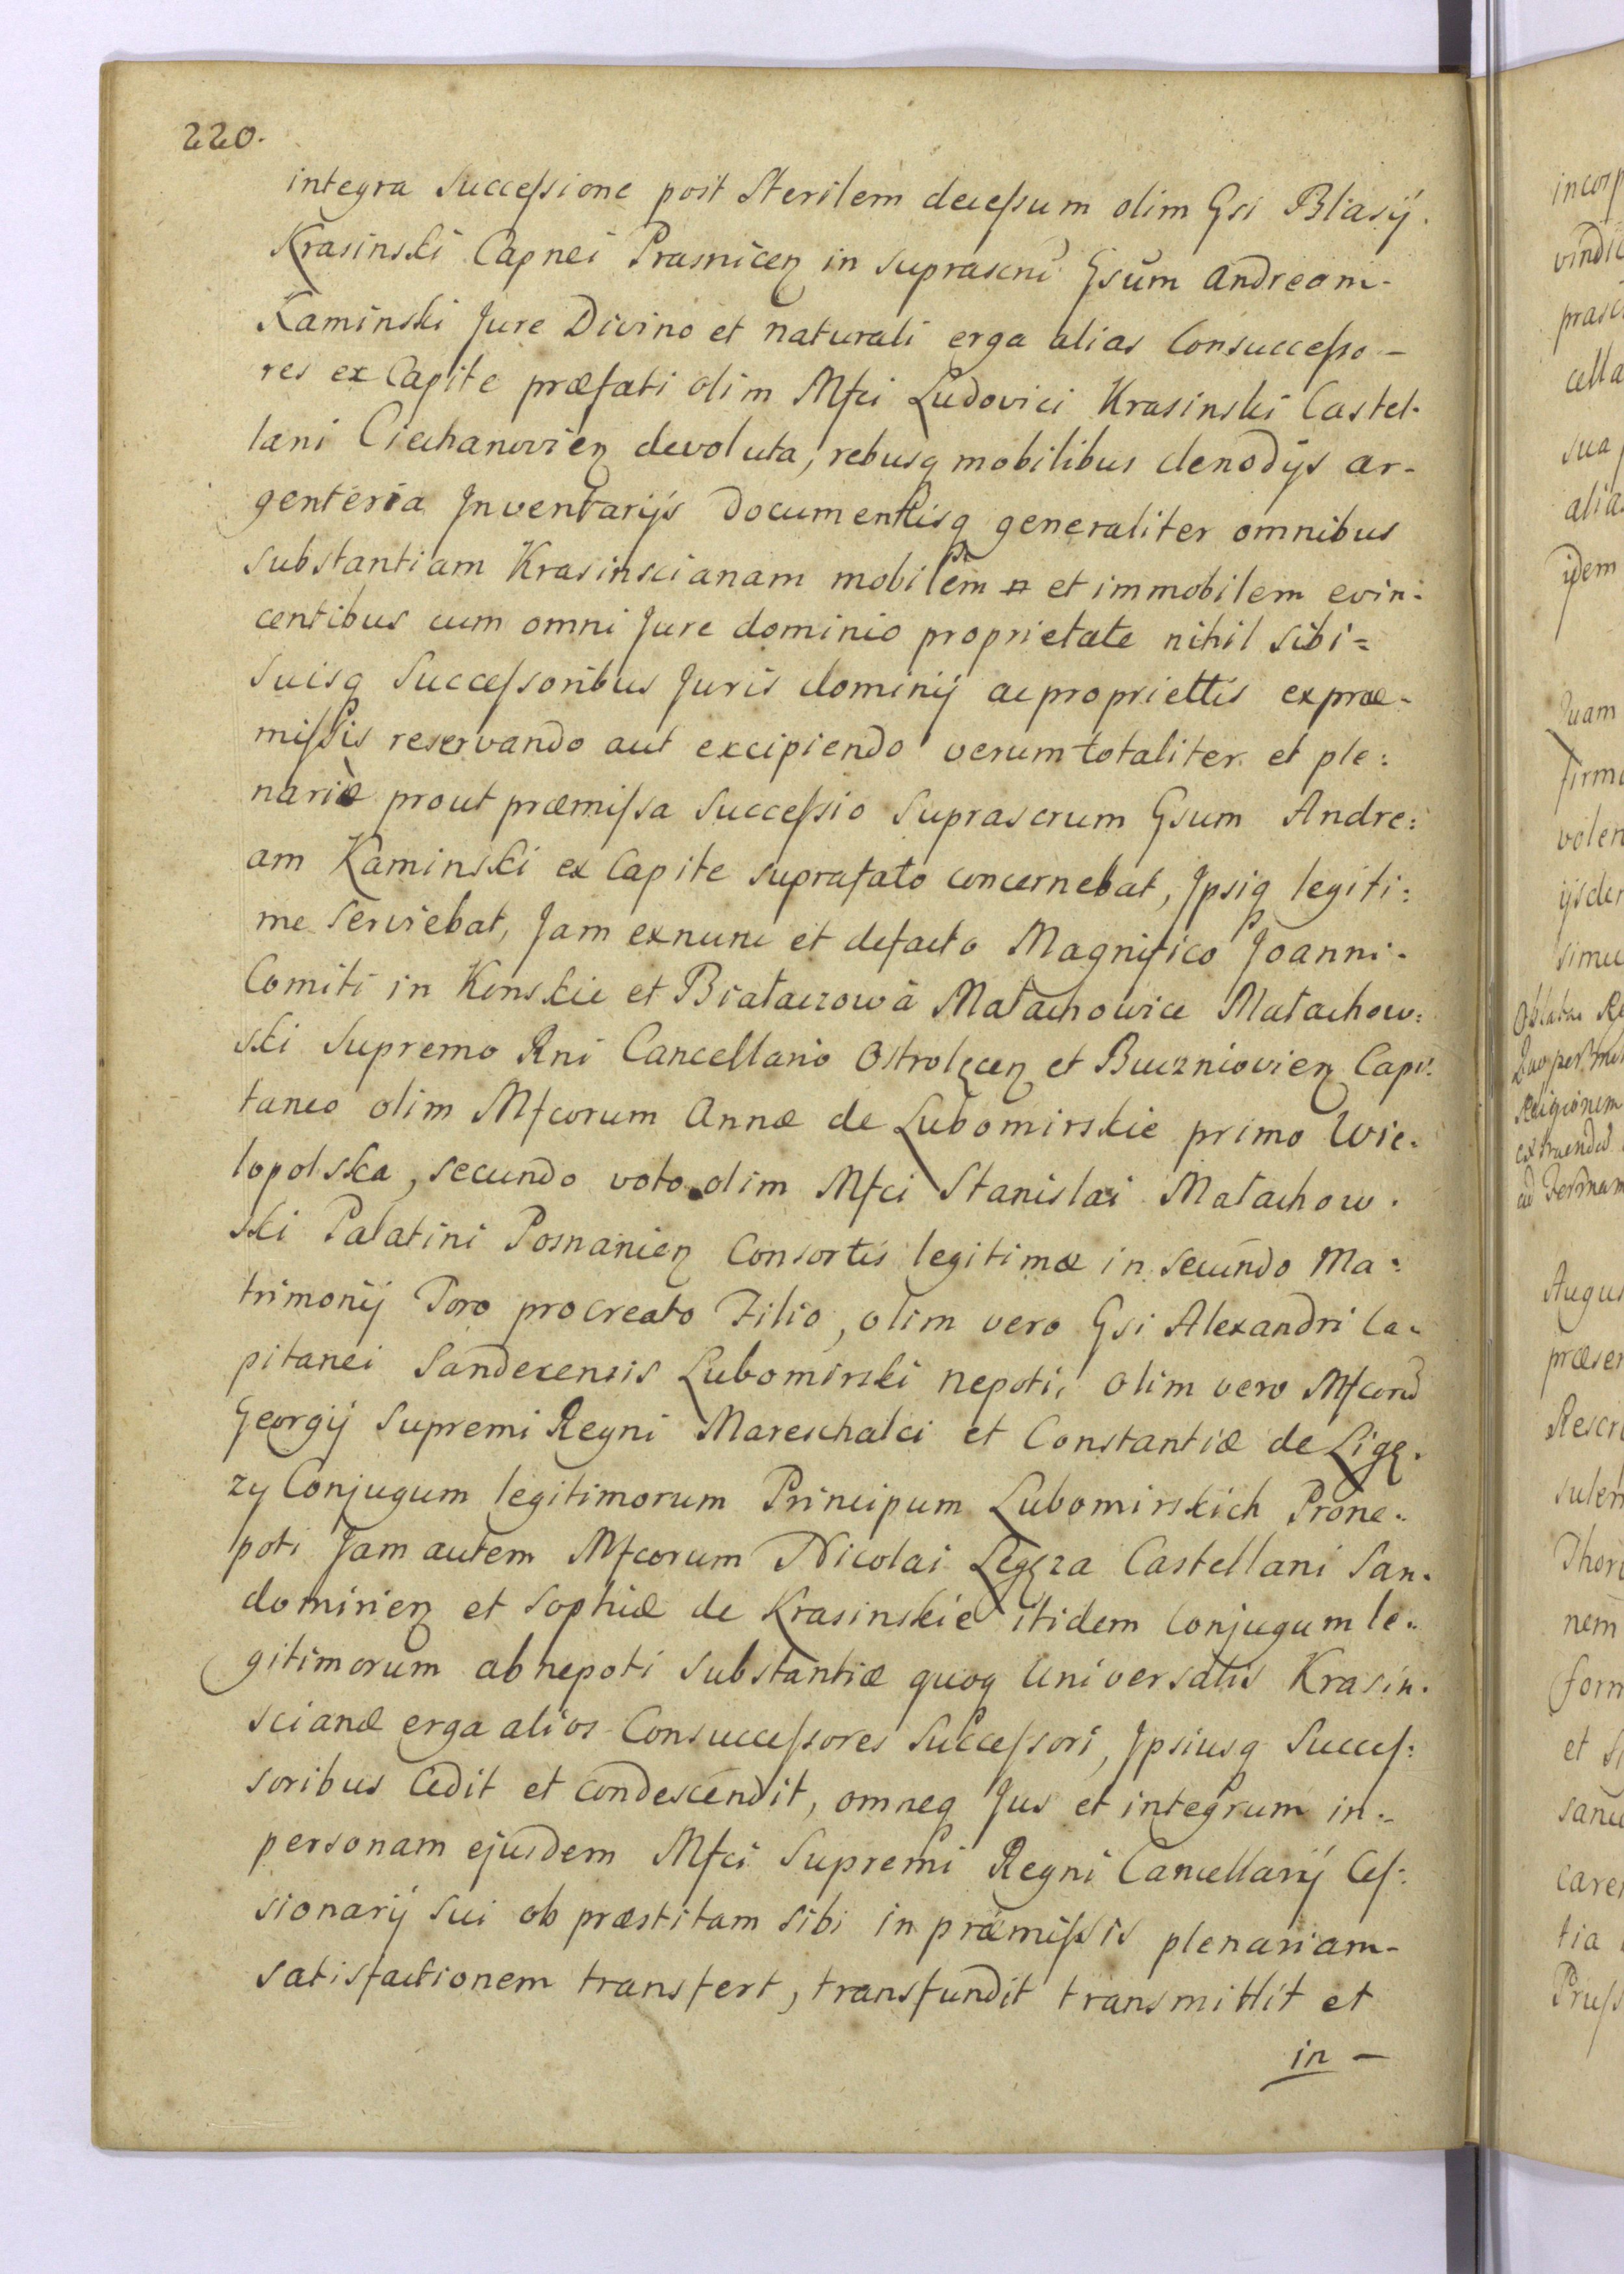 220.
integra Succeſsione post Sterilem deceſsum olim Gsi Blasÿ.
Krasinski Capnei Prasnicen in suprascrū Gsum Andream-
Kaminski Jure Divino et naturali erga alias Consucceſso-
res ex Capite præfati olim Mfci Ludovici Krasinski Castel-
lani Ciechanovien devoluta, rebusq mobilibus clenodÿs ar-
genteria Inventarÿs Documentisq generaliter omnibus
substantiam Krasinscianam mobilem et immobilem evin:
centibus cum omni Jure dominio proprietate nihil sibi=
Suisq Succeſsoribus Juris dominÿ ac proprietttis ex præ-
miſsis reservando aut excipiendo verum totaliter et ple:
nariè prout præmiſsa Succeſsio Suprascrum Gsum Andre:
am Kaminski ex Capite suprafato concernebat, Ipsiq legiti:
me serviebat, Jam exnunc et defacto Magnifico Joanni.
Comiti in Konskie et Białaczow à Małachowice Małachow:
ski Supremo Rni Cancellario Ostrolęcen et Buczniovien Capi:
taneo olim Mfcorum Annæ de Lubomirskie primo Wie-
lopolska, secundo voto olim Mfci Stanislai Małachow.
ski Palatini Posnanien Consortis legitimæ in Secundo Ma:
trimonÿ Toro procreato Filio, olim vero Gsi Alexandri Ca-
pitanei Sandecensis Lubomirski nepoti, olim vero Mfcorū
Georgÿ Supremi Regni Mareschalci et Constantiæ de Ligę.
zy Conjugum legitimorum Principum Lubomirskich Prone-
poti Jam autem Mfcorum Nicolai Legęza Castellani San-
domirien et Sophiæ de Krasinskie itidem Conjugum le-
gitimorum abnepoti substantiæ quoq Universalis Krasin-
scianæ erga alios Consucceſsores Succeſsori, Ipsiusq Succeſ:
soribus Cedit et condescendit, omneq Jus et integrum in-
personam ejusdem Mfci Supremi Regni Cancellarÿ Ceſ:
sionarÿ Sui ob præstitam sibi in præmiſsis plenariam-
satisfactionem transfert, transfundit transmittit et
in -
vindic
cella
sua
alia
idem
Quam
firm
volen
ijsdem
simu
Oblatae
Religionem
extruendo
Augus
præsen
Rescri
sulem
Thor
nem
form
et
sanc
care
tia
Pruſs